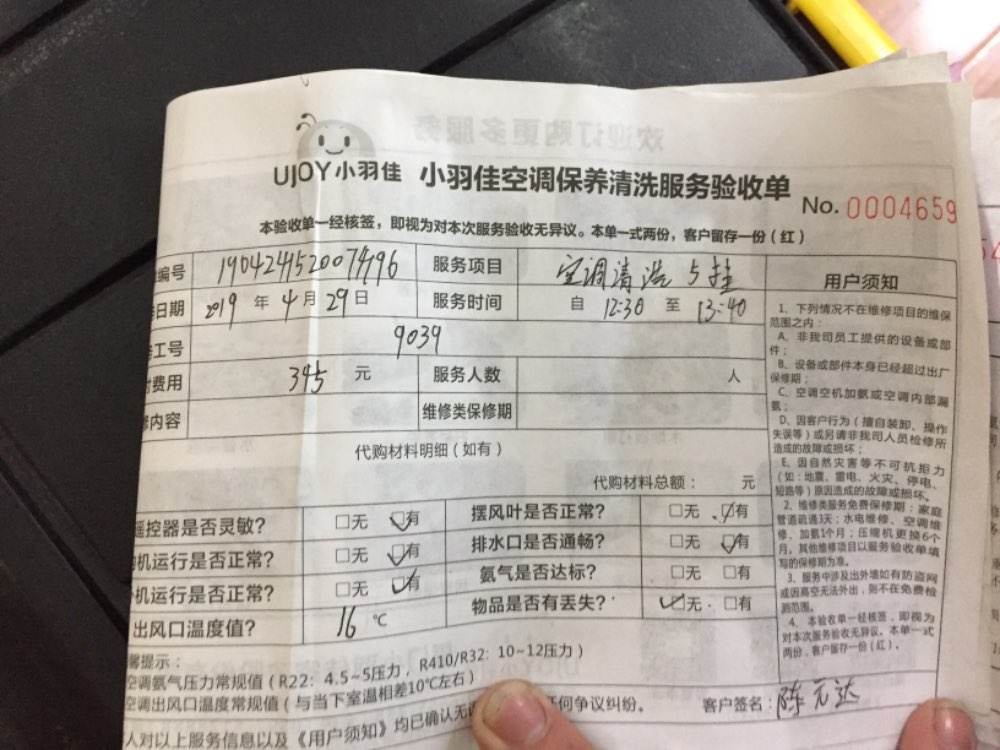 UJOY小羽佳 小羽佳空调保养清洗服务验收单 No. 0004659
本验收单一经核签，即视为对本次服务验收无异议。本单一式两份，客户留存一份（红）
编号 服务项目 空调清洗5挂
日期 2019 年 4 月 29 日 服务时间 自 12:30 至 13:40
工号 9039
费用 345 元 服务人数 人
内容 维修类保修期
代购材料明细（如有）
代购材料总额： 元
遥控器是否灵敏？ □无 □有 摆风叶是否正常？ □无 □有
机运行是否正常？ □无 □有 排水口是否通畅？ □无 □有
机运行是否正常？ □无 □有 氨气是否达标？ □无 □有
出风口温度值？ 16 ℃ 物品是否有丢失？ □无 □有
馨提示：
空调氨气压力常规值（R22：4.5~5压力，R410/R32：10~12压力）
空调出风口温度常规值（与当下室温相差10℃左右）
人对以上服务信息以及《用户须知》均已确认无 任何争议纠纷。 客户签名：陈元达
用户须知
1、下列情况不在维修项目的维保
范围之内：
A、非我司员工提供的设备或部
件；
B、设备或部件本身已经超过出厂
保修期；
C、空调空机加氨或空调内部漏
氨；
D、因客户行为（擅自装卸、操作
失误等）或另请非我司人员检修所
造成的故障或损坏；
E、因自然灾害等不可抗拒力
（如：地震、雷电、火灾、停电、
短路等）原因造成的故障或损坏。
2、维修类服务免费保修期：家庭
管道疏通3天；水电维修、空调维
修、加氨1个月；压缩机更换6个
月，其他维修项目以服务验收单填
写的保修期为准。
3、服务中涉及出外墙如有防盗网
或因高空无法外出，则不在免费检
测范围。
4、本验收单一经核签，即视为
对本次服务验收无异议。本单一式
两份，客户留存一份（红）。